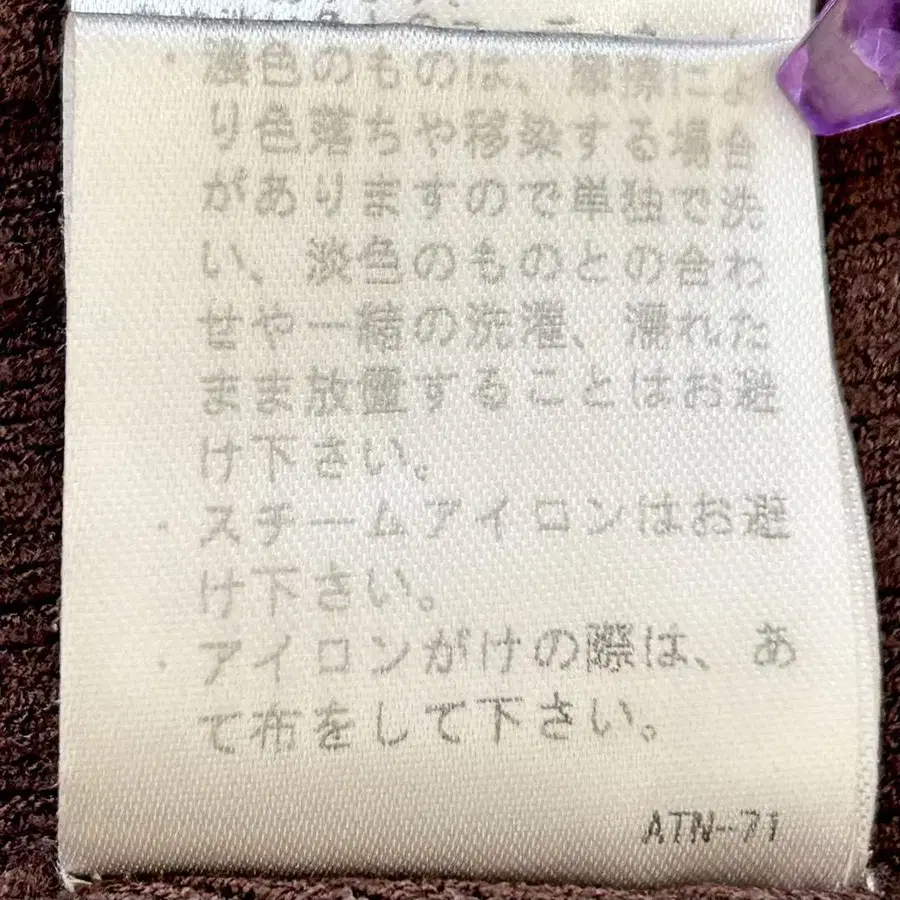 ・濃色のものは、摩擦によ
り色落ちや移染する場合
がありますので単独で洗
い、淡色のものとの合わ
せや一緒の洗濯、濡れた
まま放置することはお避
け下さい。
・スチームアイロンはお避
け下さい。
・アイロンがけの際は、あ
て布をして下さい。
ATN-71